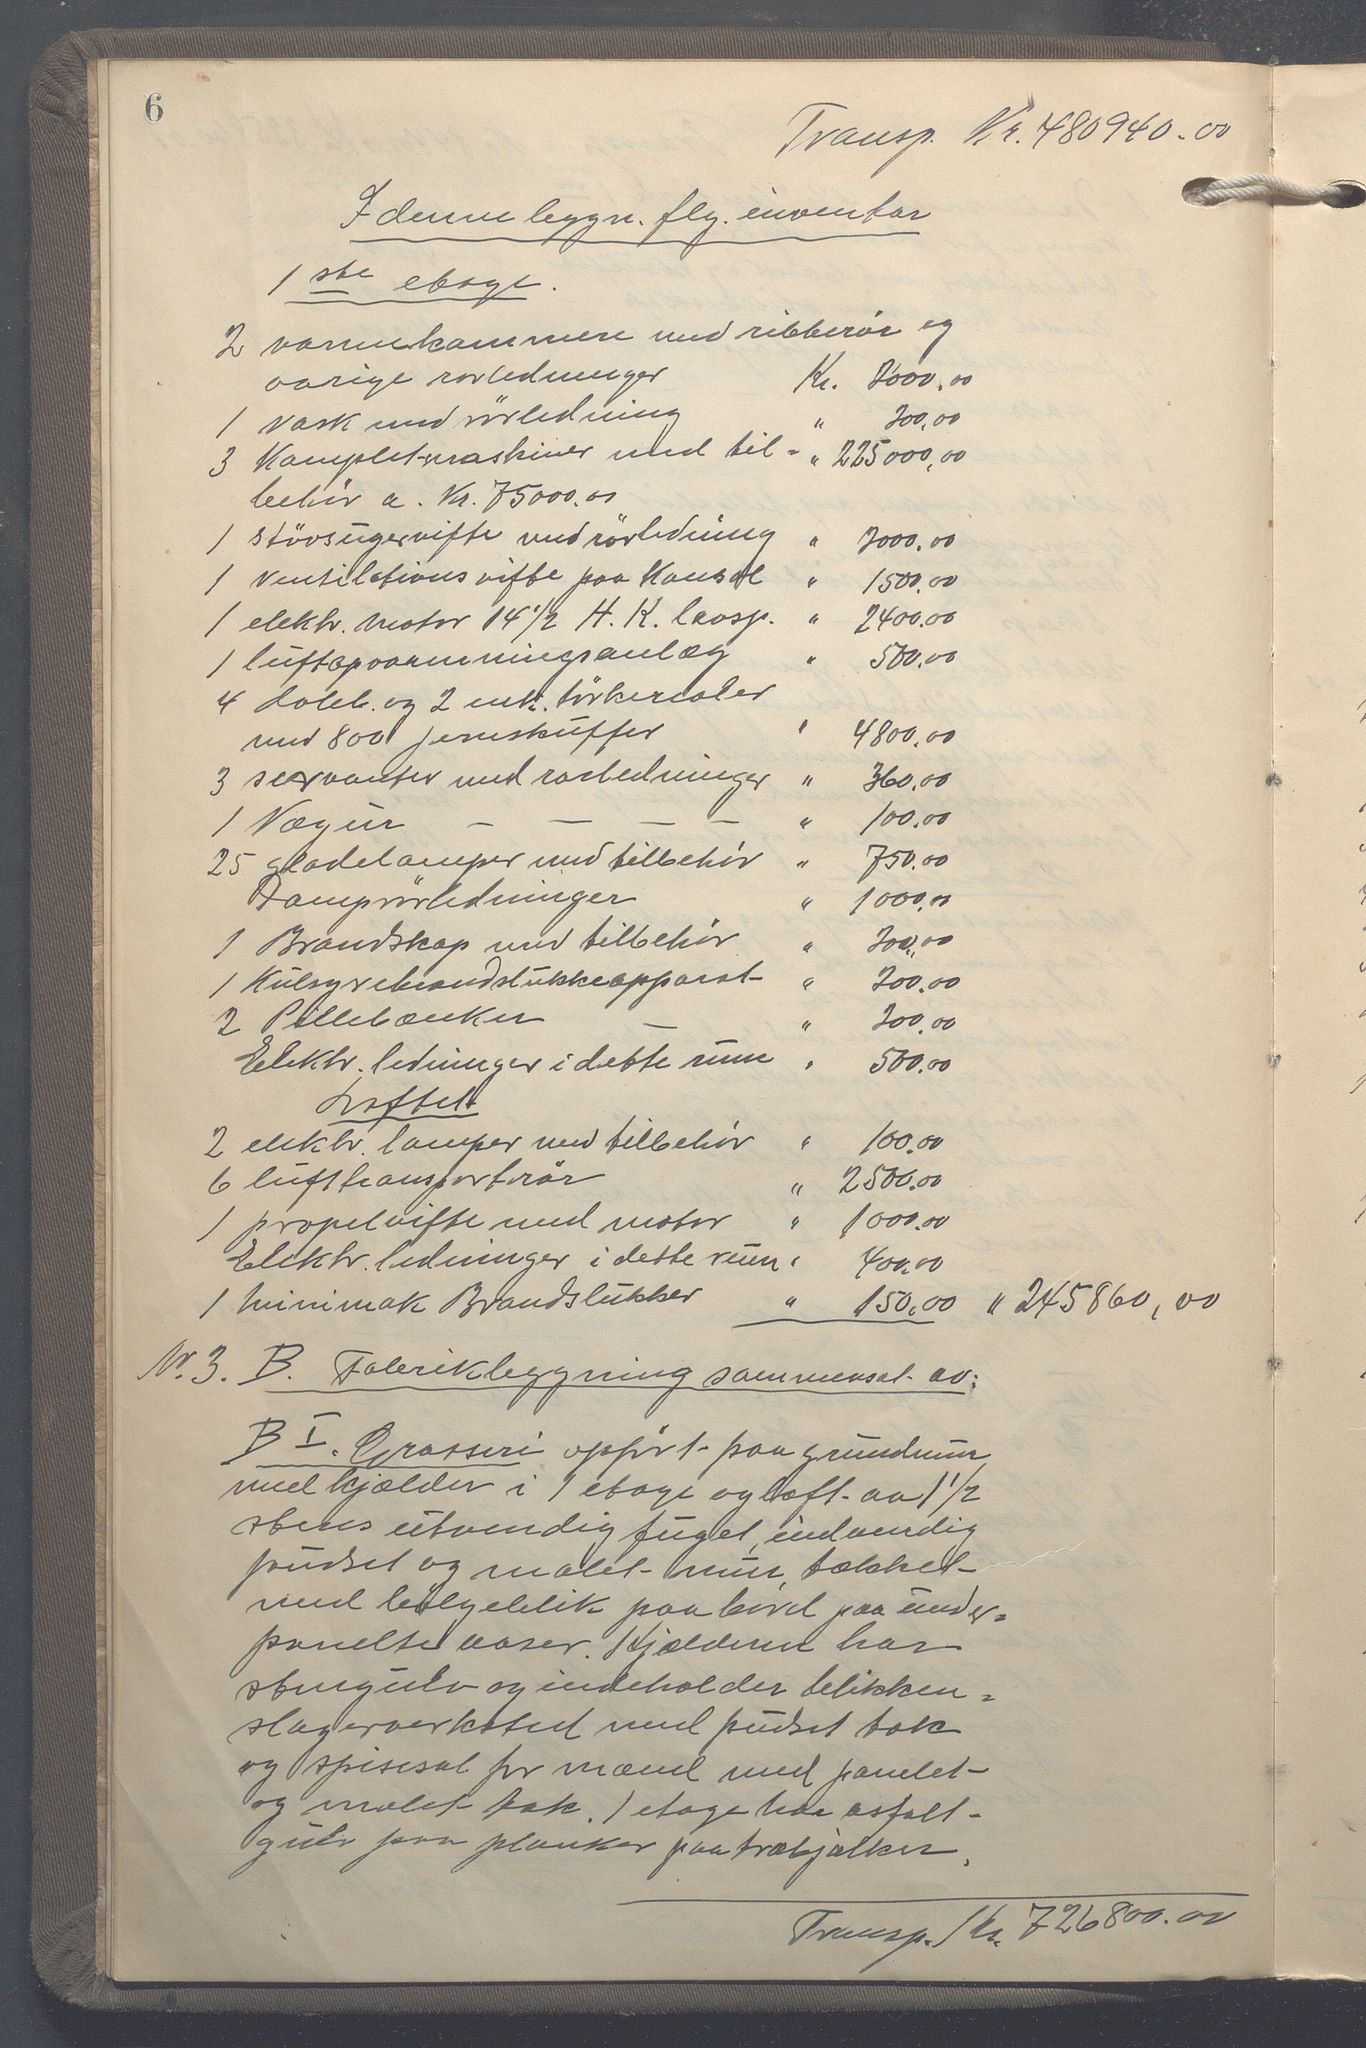 6
Transp. Kr. 480940.00
I denne byggn. flg. inventar
1 ste etage.
2 varmekammere med ribberör og
övrige rörledninger Kr. 2000,00
1 vask med rörledning " 200,00
3 Komplet-maskiner med til- " 225000,00
behör a. Kr. 75000.00
1 stövsugervifte med rörledning " 2000.00
1 ventilationsvifte paa Konsol " 1500.00
1 elektr. motor 14 1/2 H.K. lavsp. " 2400.00
1 luftopvarmningsanlæg " 500.00
4 dobb. og 2 enk. törkereoler
med 800 jernskuffer " 4800.00
3 servanter med rörledninger " 360.00
1 Vægur — — — — " 100.00
25 glödelamper med tilbehör " 750.00
Dampvörledninger " 1000.00
1 Brandskap med tilbehör " 200.00
1 Kulsyrebrandslukkeapparat " 200.00
2 Pillebænker — " 200.00
Elektr. ledninger i dette rum " 500.00
Loftet
2 elektr. lamper med tilbehör " 100.00
6 lufttransportrör " 2500.00
1 propelvifte med motor " 1000.00
Elektr. ledninger i dette rum " 400.00
1 minimak Brandslukker " 150.00 " 245860,00
Nr. 3. B. Fabrikbyggning sammensat av:
B I. Grosseri opfört paa grundmur
med kjælder i 1 etage og loft av 1 1/2
stens utvendig fuget, indvendig
pudset og malet mur, tækket
med bölgeblik paa bord paa under-
panelte aaser. Kjælderen har
stengulv og indeholder blikken-
slagerverksted med pudset tak
og spisesal for mænd med panelet
og malet tak. 1 etage har asfalt-
gulv paa planker paa træbjælker.
Transp. Kr. 726800.00